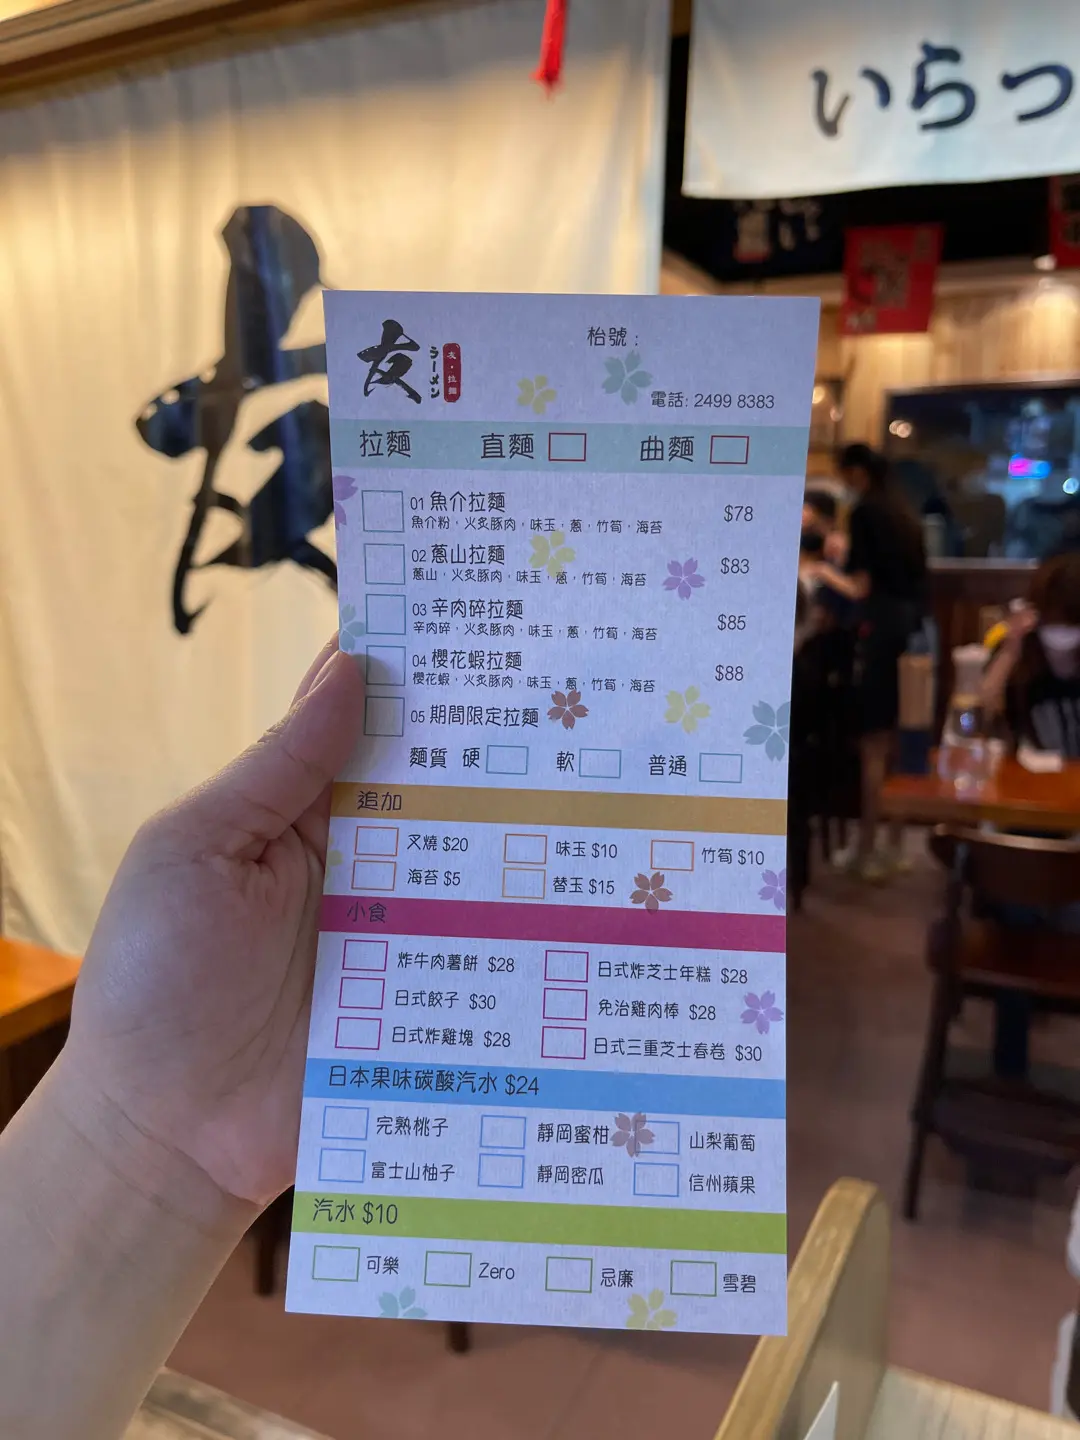 いらっ
友
友
ラーメン
友・拉麵
枱號：
電話: 2499 8383
拉麵 直麵 曲麵
01 魚介拉麵 $78
魚介粉，火炙豚肉，味玉，蔥，竹筍，海苔
02 蔥山拉麵 $83
蔥山，火炙豚肉，味玉，蔥，竹筍，海苔
03 辛肉碎拉麵 $85
辛肉碎，火炙豚肉，味玉，蔥，竹筍，海苔
04 櫻花蝦拉麵 $88
櫻花蝦，火炙豚肉，味玉，蔥，竹筍，海苔
05 期間限定拉麵
麵質 硬 軟 普通
追加
叉燒 $20 味玉 $10 竹筍 $10
海苔 $5 替玉 $15
小食
炸牛肉薯餅 $28 日式炸芝士年糕 $28
日式餃子 $30 免治雞肉棒 $28
日式炸雞塊 $28 日式三重芝士春卷 $30
日本果味碳酸汽水 $24
完熟桃子 靜岡蜜柑 山梨葡萄
富士山柚子 靜岡密瓜 信州蘋果
汽水 $10
可樂 Zero 忌廉 雪碧